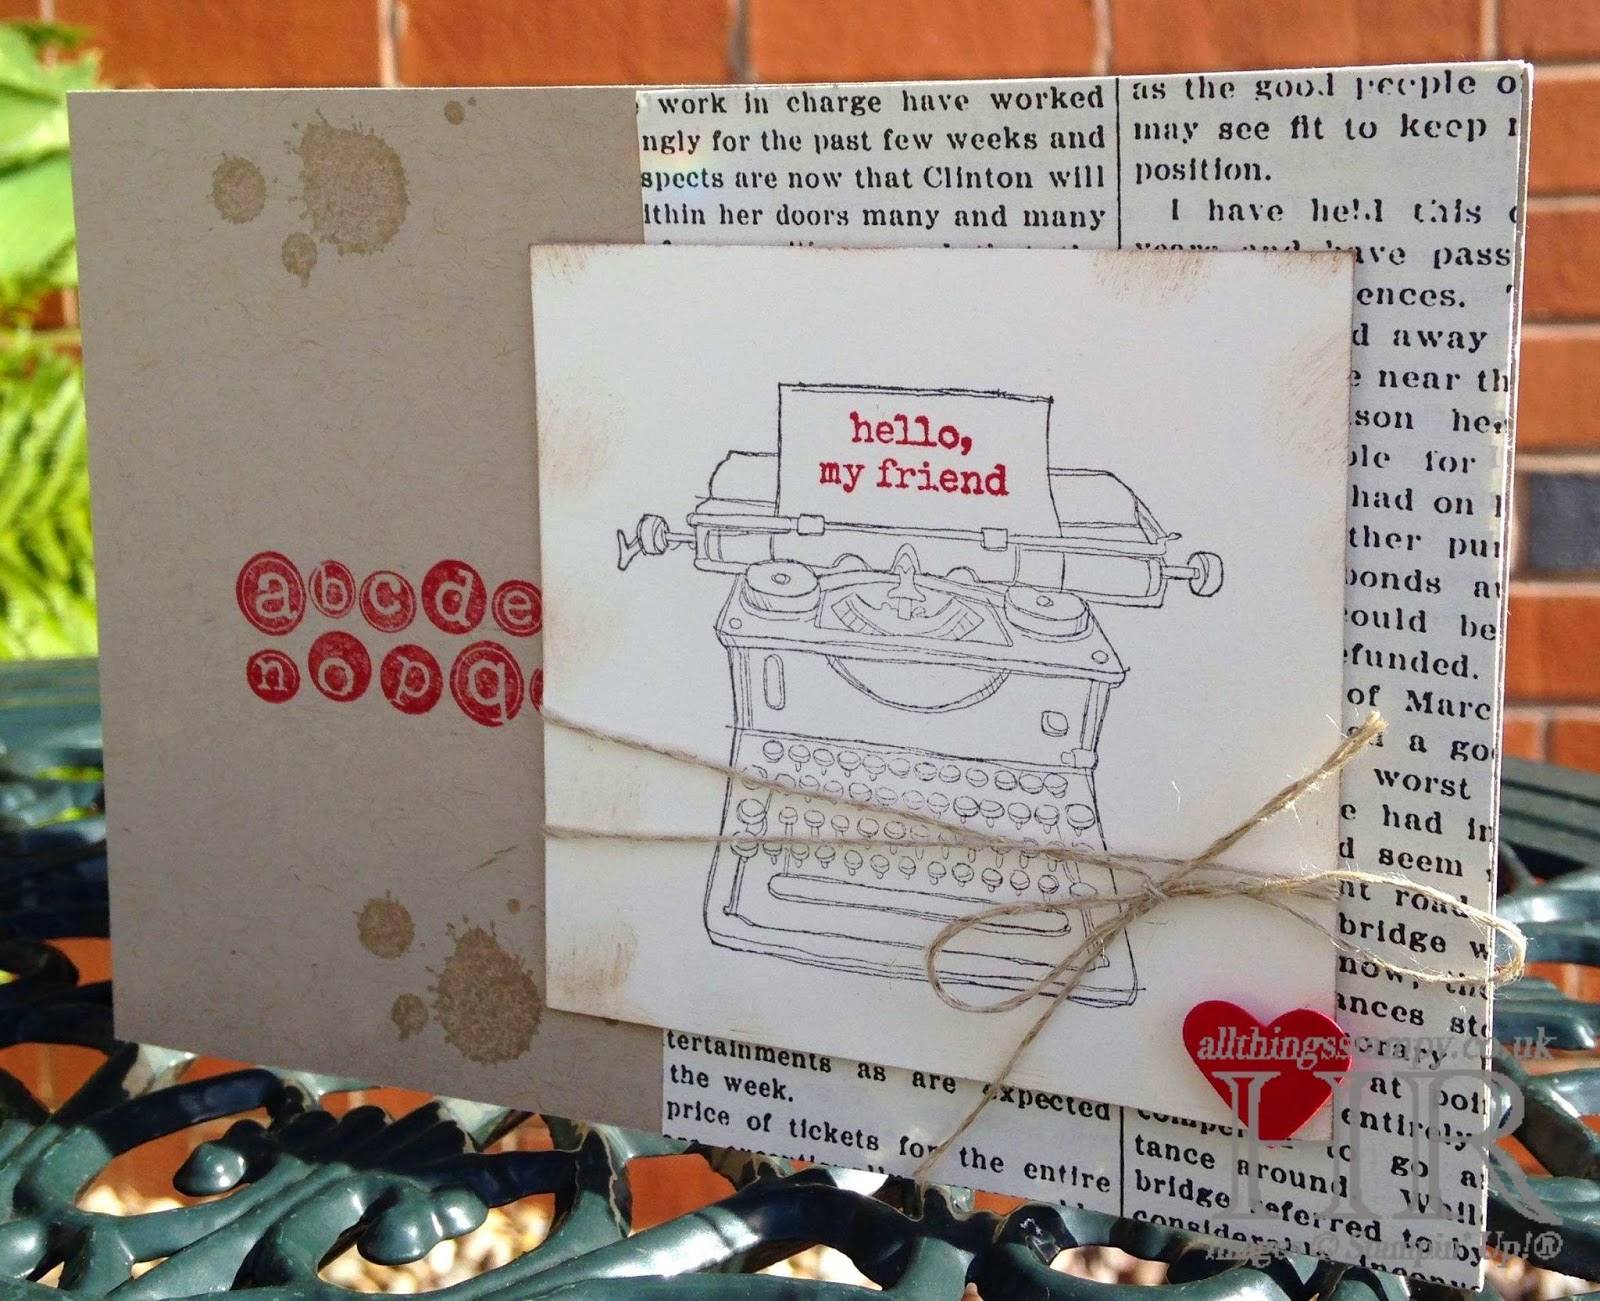 work in charge have worked
ngly for the past few weeks and
spects are now that Clinton will
ithin her doors many and many
as the good people o
may see fit to keep
position.
I have held this
years and have pass
ences.
d away
e near th
son he
ple for
had on
ther pur
bonds au
ould be
efunded.
of Marc
a go
worst
e had in
d seem
nt road
bridge w
now, the
ances sto
orary
at poi
entirely
to go a
tance around. Whil
bridge referred to by
hello,
my friend
abcde
nopq
tertainments as are expected
the week.
price of tickets for the entire
allthingsstampy.co.uk
HR
images © Stampin' Up!®